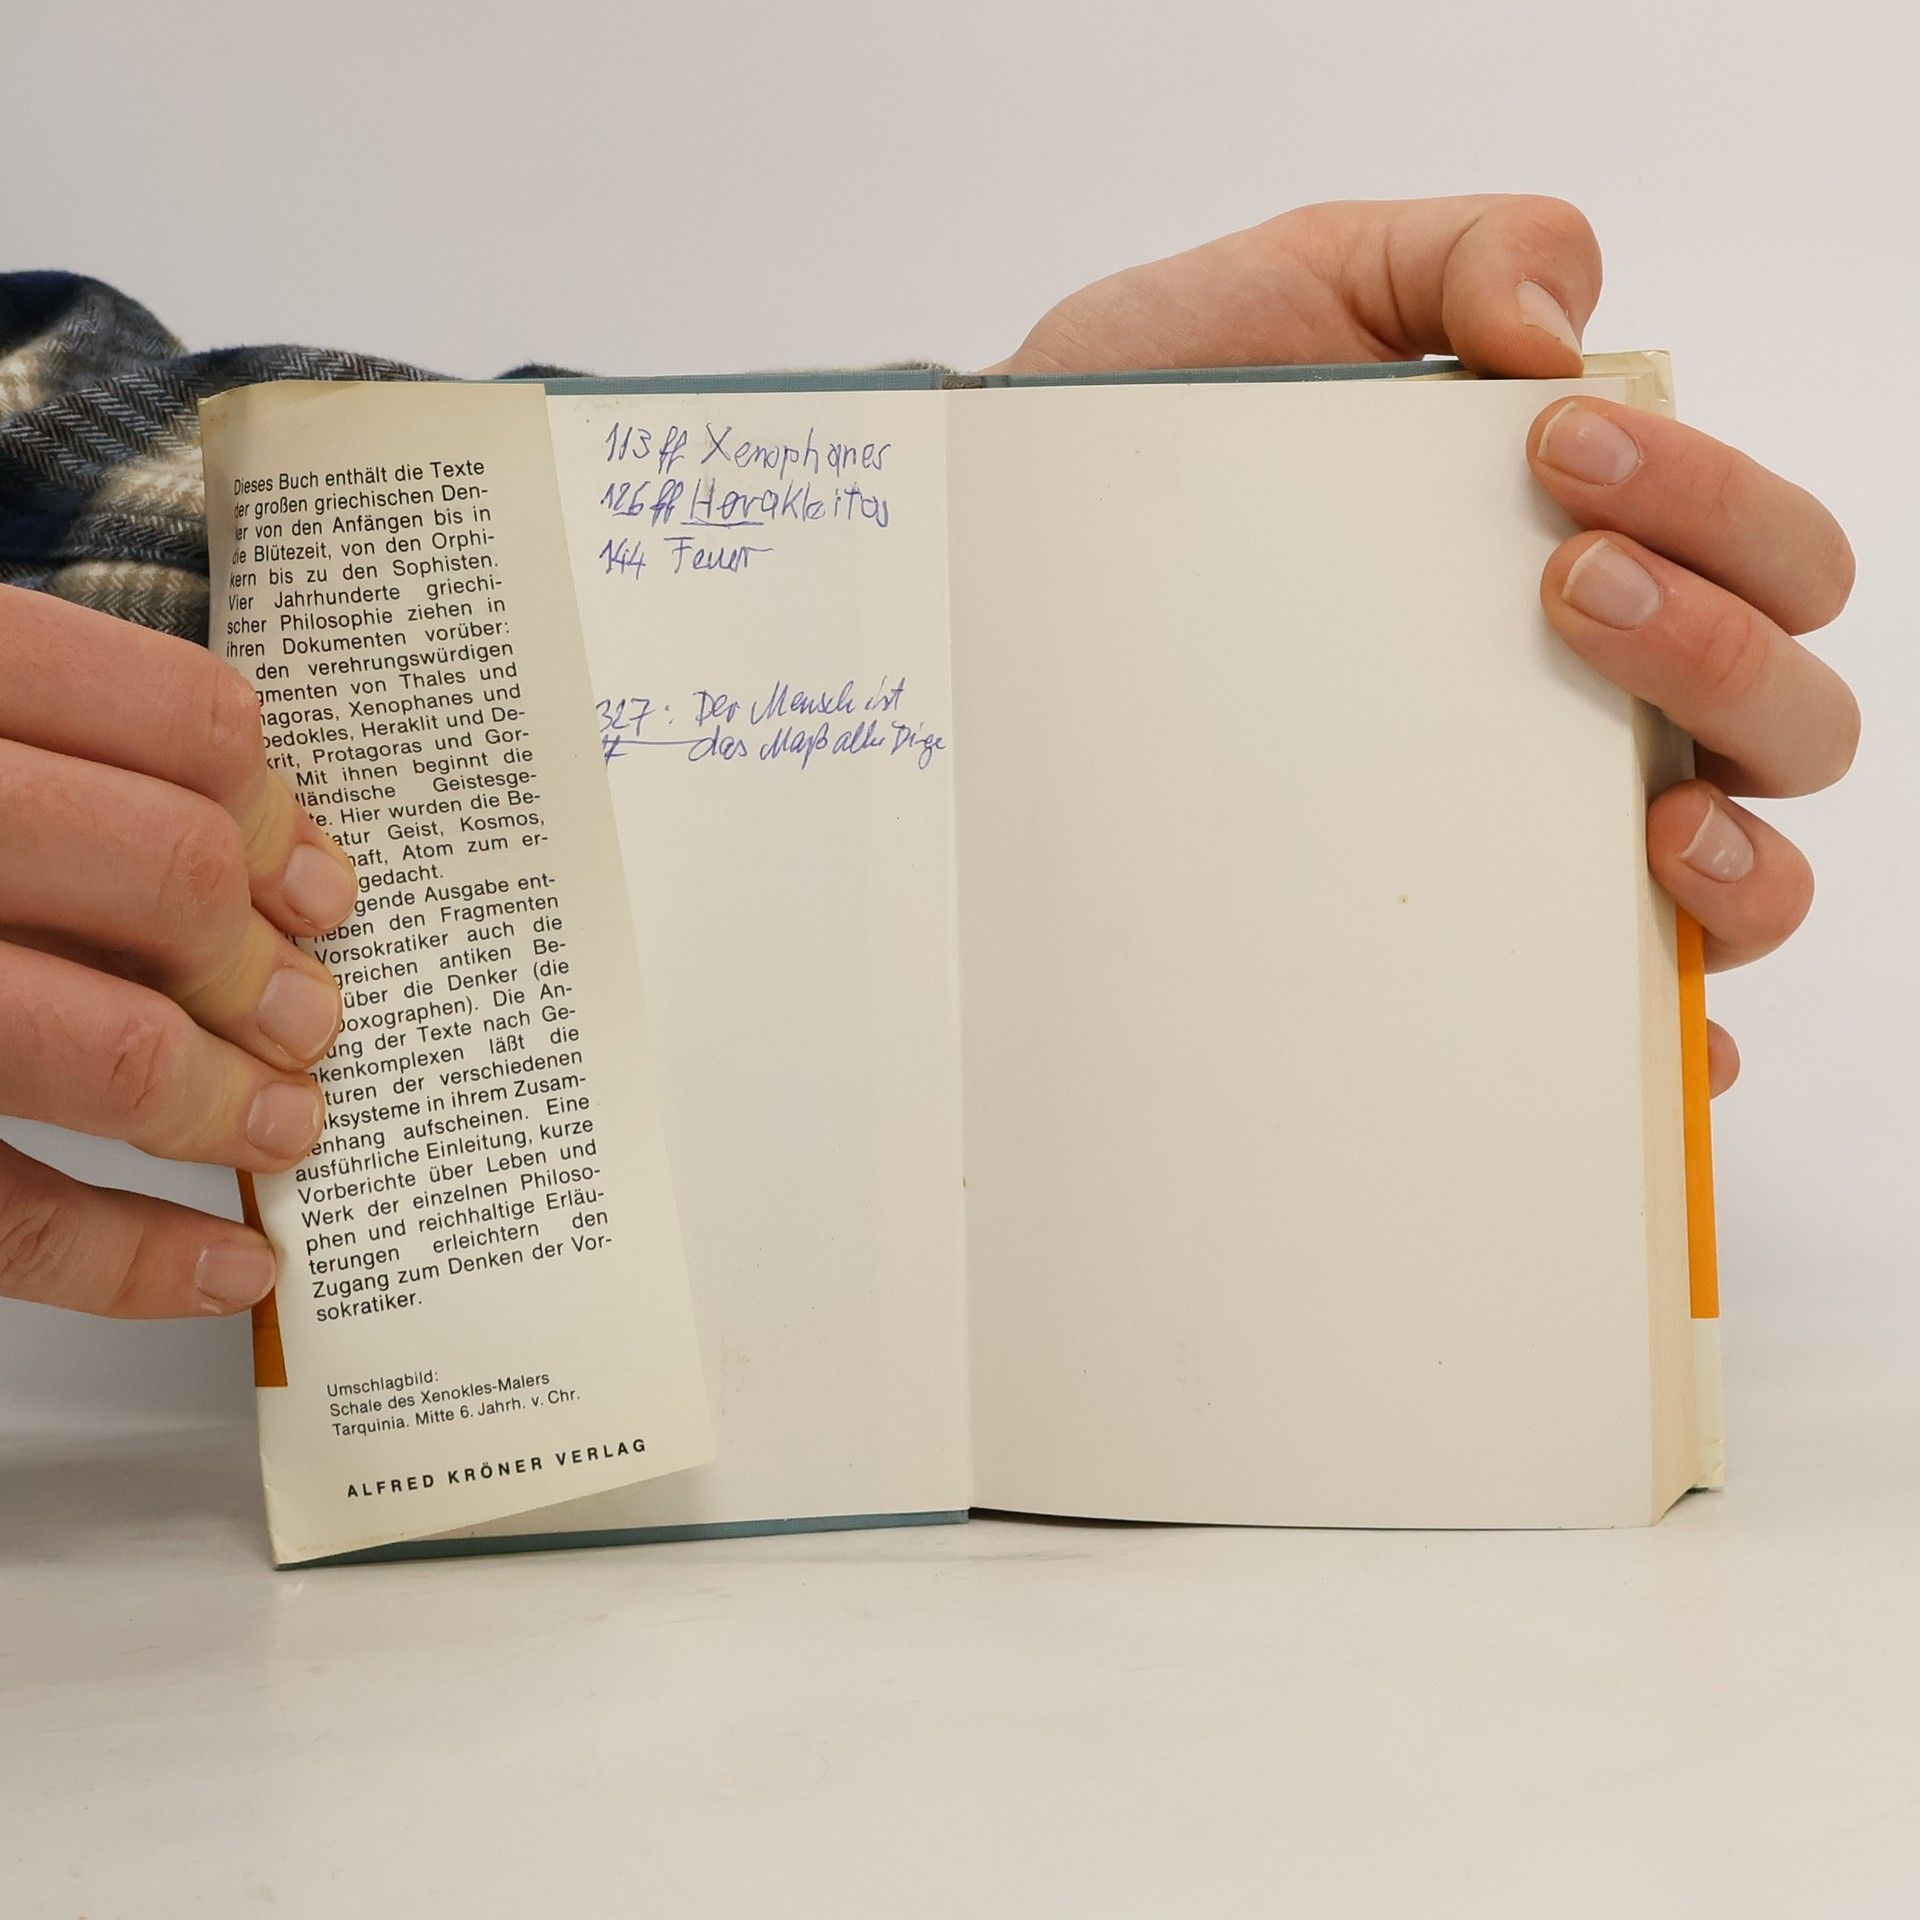 Dieses Buch enthält die Texte
der großen griechischen Den-
ker von den Anfängen bis in
die Blütezeit, von den Orphi-
kern bis zu den Sophisten.
Vier Jahrhunderte griechi-
scher Philosophie ziehen in
ihren Dokumenten vorüber:
den verehrungswürdigen
gmenten von Thales und
hagoras, Xenophanes und
pedokles, Heraklit und De-
krit, Protagoras und Gor-
Mit ihnen beginnt die
ländische Geistesge-
te. Hier wurden die Be-
atur Geist, Kosmos,
haft, Atom zum er-
gedacht.
gende Ausgabe ent-
t neben den Fragmenten
Vorsokratiker auch die
greichen antiken Be-
über die Denker (die
Doxographen). Die An-
ung der Texte nach Ge-
nkenkomplexen läßt die
turen der verschiedenen
ksysteme in ihrem Zusam-
enhang aufscheinen. Eine
ausführliche Einleitung, kurze
Vorberichte über Leben und
Werk der einzelnen Philoso-
phen und reichhaltige Erläu-
terungen erleichtern den
Zugang zum Denken der Vor-
sokratiker.
Umschlagbild:
Schale des Xenokles-Malers
Tarquinia. Mitte 6. Jahrh. v. Chr.
ALFRED KRÖNER VERLAG
113 ff Xenophanes
126 ff Herakleitos
144 Feuer
327: Der Mensch ist
das Maß aller Dinge